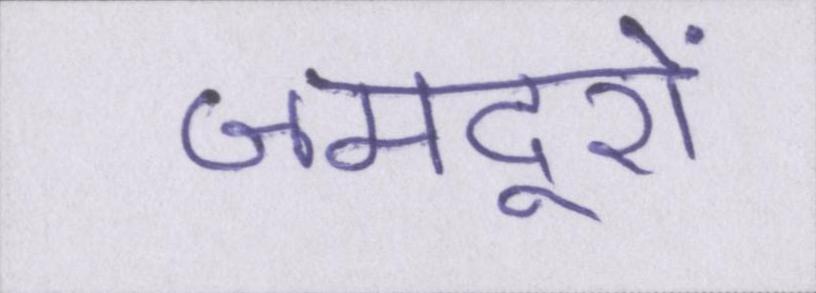 जमदूरों